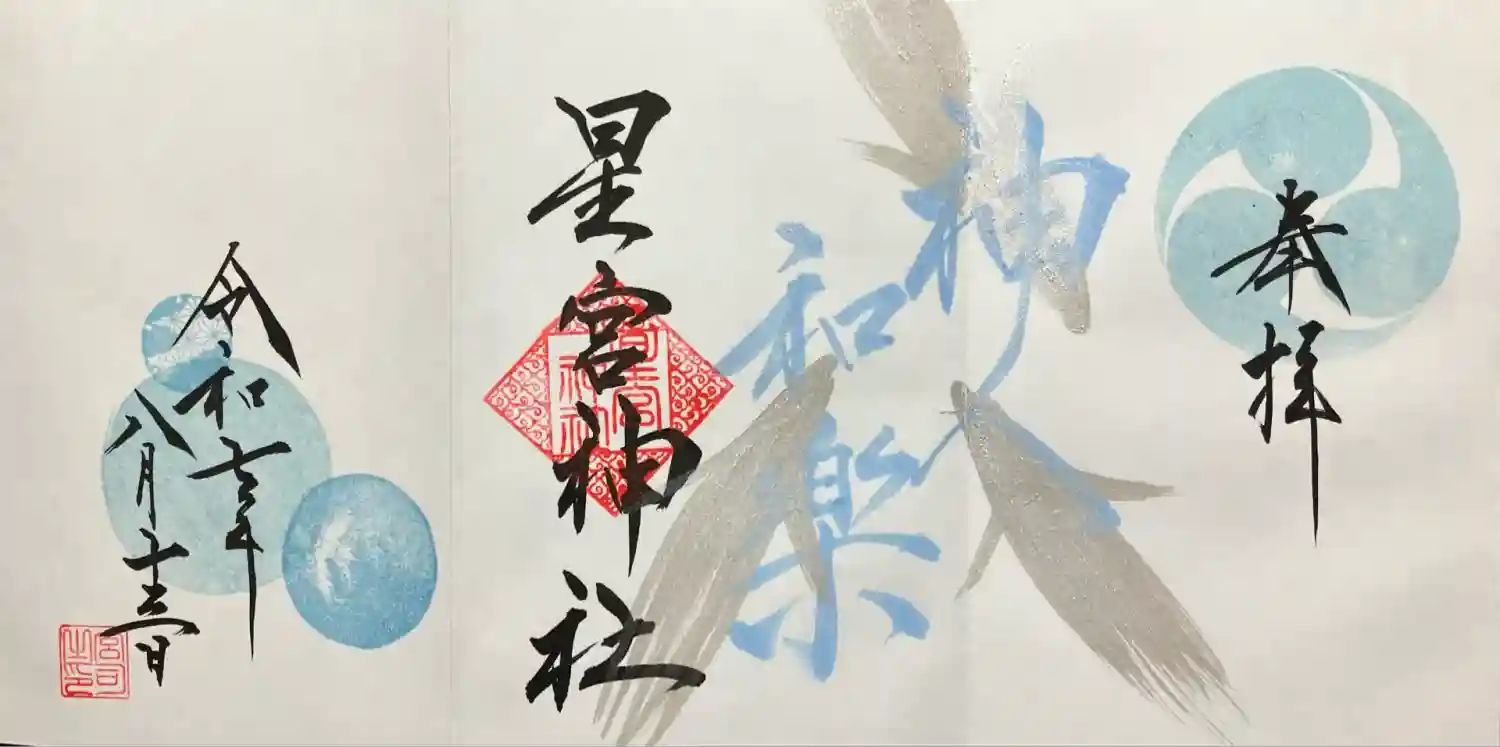 奉拝
神人
和楽
星宮神社
星宮
神社
令和六年
八月十三日
宮司
之印